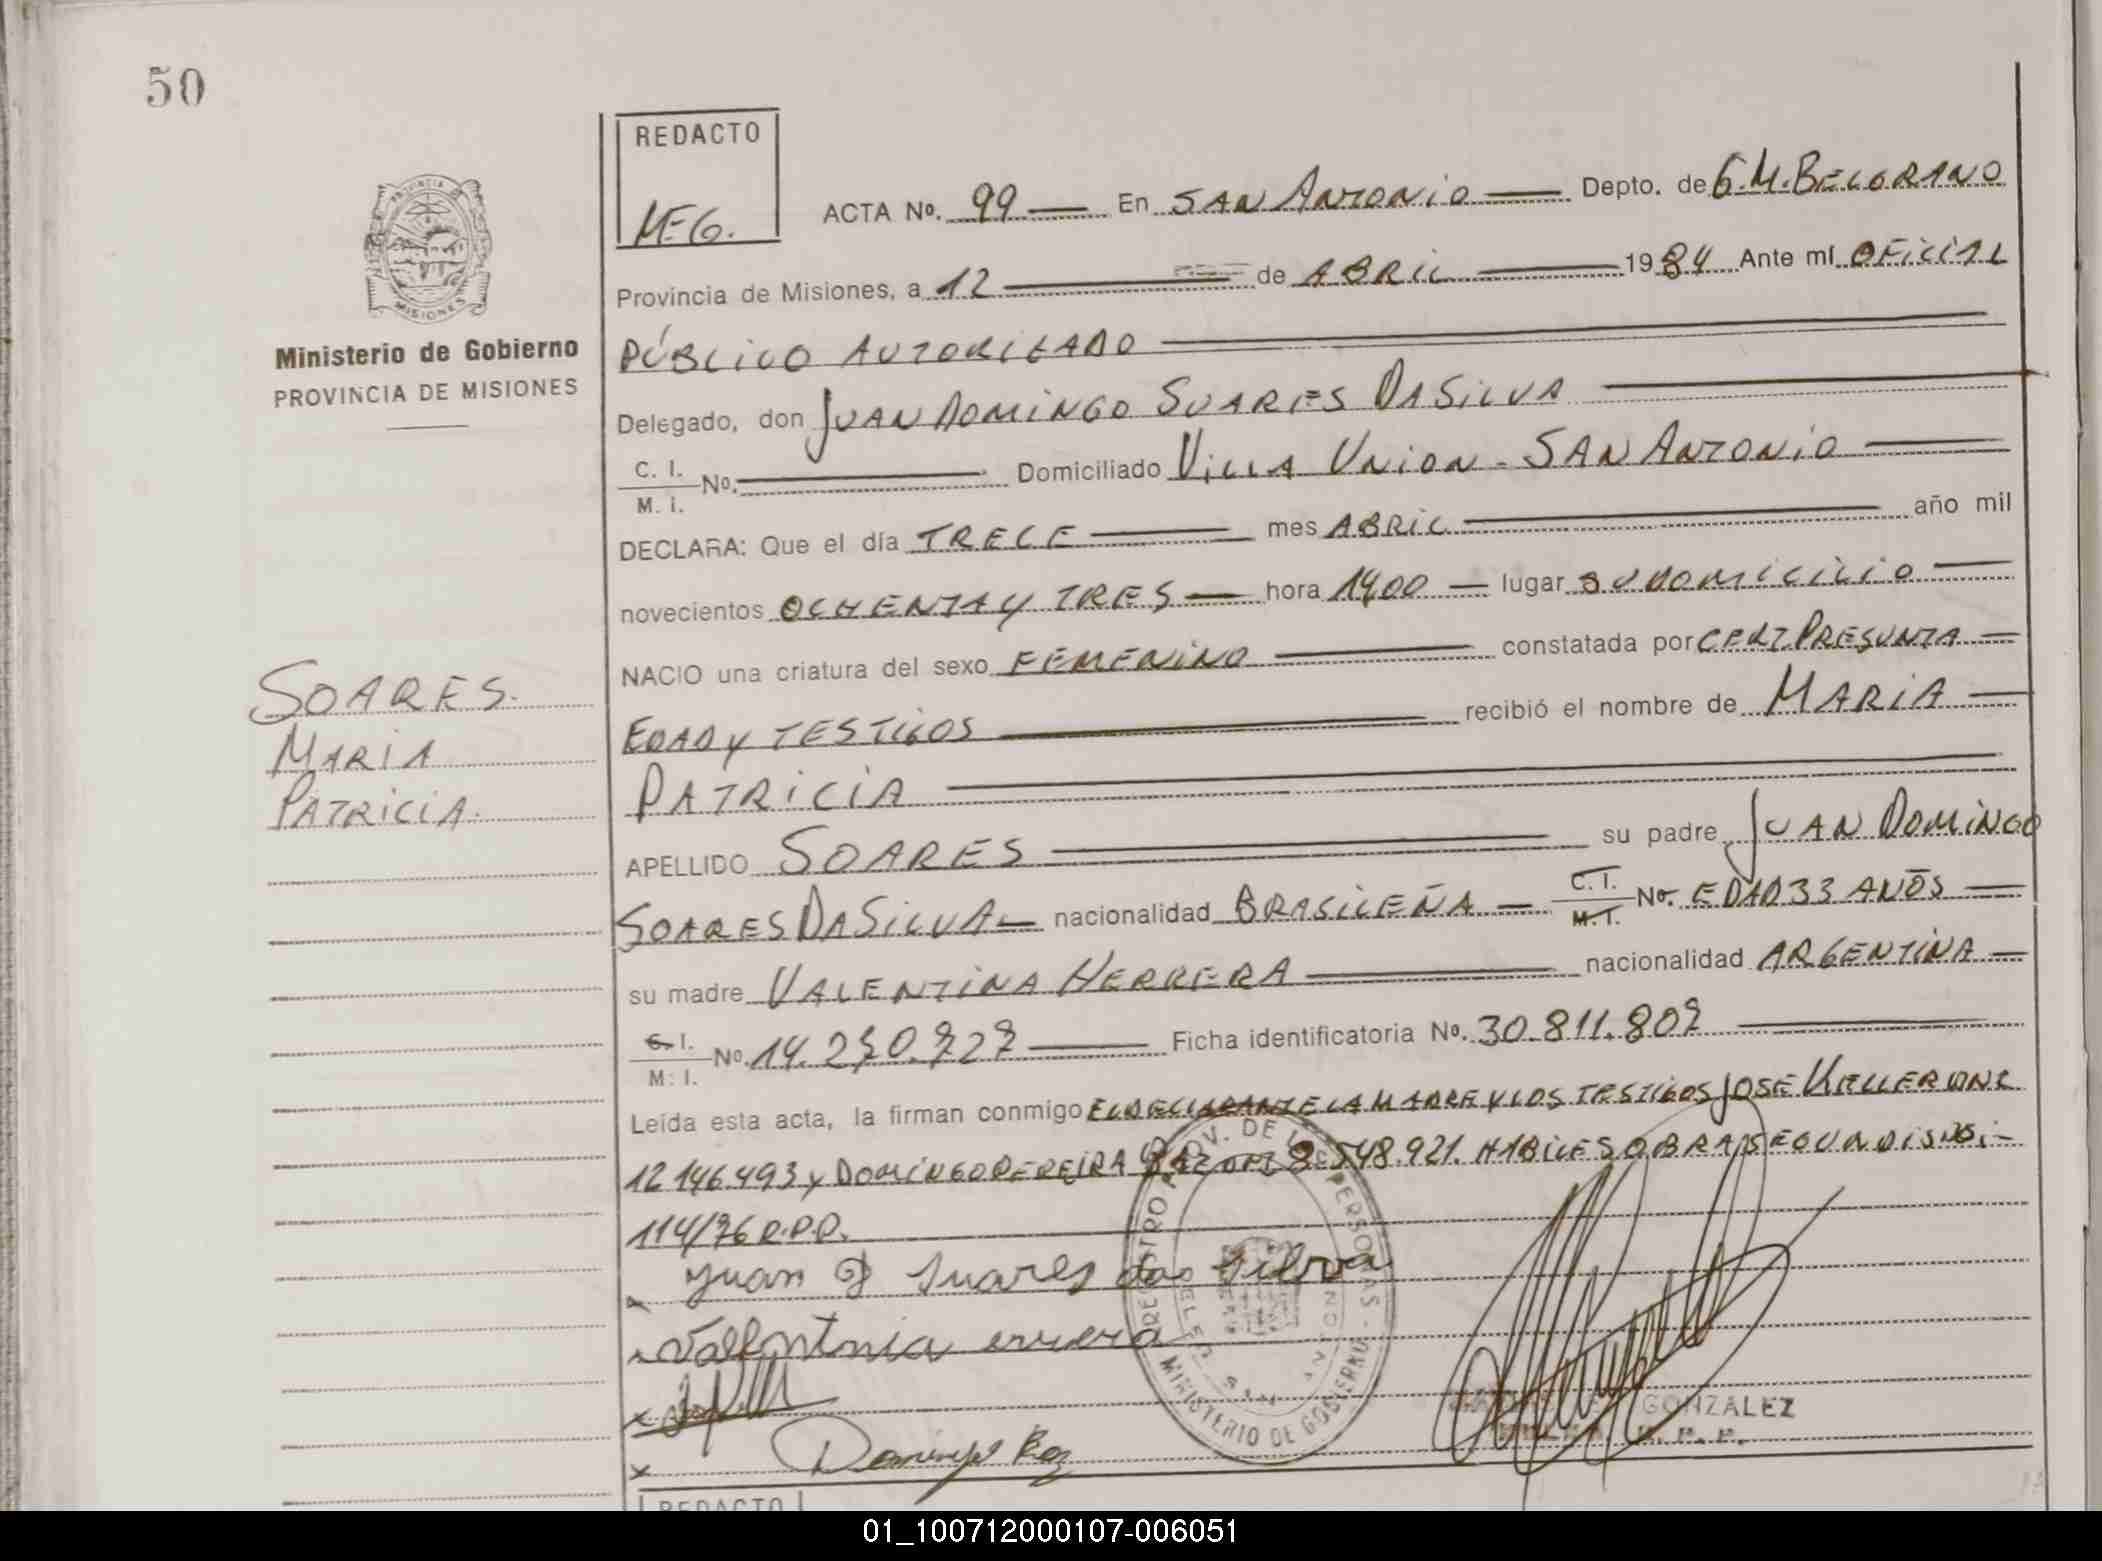 50
REDACTO
M.E.G.
PROVINCIA DE
MISIONES
Ministerio de Gobierno
PROVINCIA DE MISIONES
ACTA No. 99 En SAN ANTONIO Depto. de G.M. BELGRANO
Provincia de Misiones, a 12 de ABRIL 1984 Ante mí OFICIAL
PÚBLICO AUTORIZADO
Delegado, don JUAN DOMINGO SUARES DA SILVA
C. I. M. I. No. Domiciliado VILLA UNION - SAN ANTONIO
DECLARA: Que el día TRECE mes ABRIL año mil
novecientos OCHENTA Y TRES hora 1400 lugar SU DOMICILIO
NACIO una criatura del sexo FEMENINO constatada por CERT. PRESUNTA
EDAD Y TESTIGOS recibió el nombre de MARIA
PATRICIA
SOARES.
MARIA
PATRICIA.
APELLIDO SOARES su padre JUAN DOMINGO
SOARES DA SILVA nacionalidad BRASILEÑA C. I. M. I. No. EDAD 33 AÑOS
su madre VALENTINA HERRERA nacionalidad ARGENTINA
C. I. M. I. No. 14. Ficha identificatoria No. 30.811.807
Leída esta acta, la firman conmigo EL DECLARANTE LA MADRE Y LOS TESTIGOS JOSE KELLER DNI
12146.493 y DOMINGO PEREIRA 548.921. HABILES OBRA SEGUN DISPOSI-
114/76 R.P.P.
Juan D Suares da Silva
Valentnia errera
Domingo
REGISTRO PROV. DE LAS PERSONAS - MINISTERIO DE GOBIERNO
SAN ANTONIO
GONZALEZ
REDACTO
01_100712000107-006051